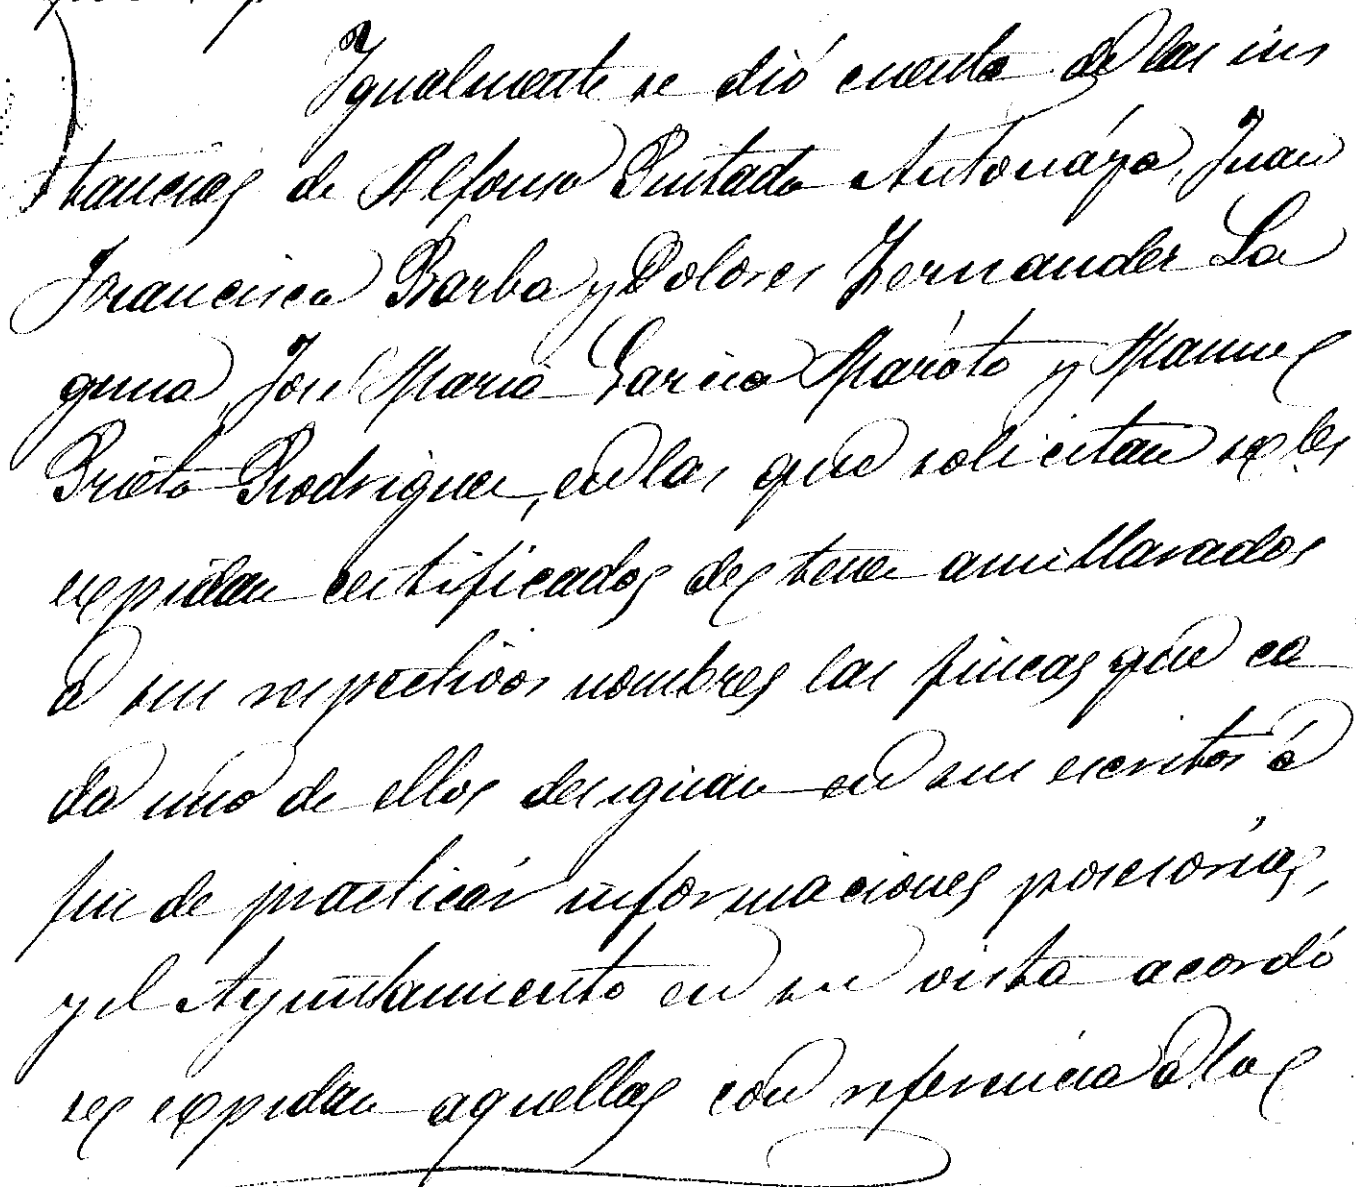 Igualmente se dió cuenta de las ins
tancias de Alfonso Pintado Antonáya, Juan
Francisco Barba y Dolores Hernandez La
guna, José Maria Garcia Maroto y Manuel
Prieto Rodriguez, en las que solicitan se les
expidan certificados de tener amillarados
á sus respectivos nombres las fincas que ca
da uno de ellos designan en sus escritos á
fin de practicar informaciones posesorias,
y el Ayuntamiento en su vista acordó
se expidan aquellas con referencia á las